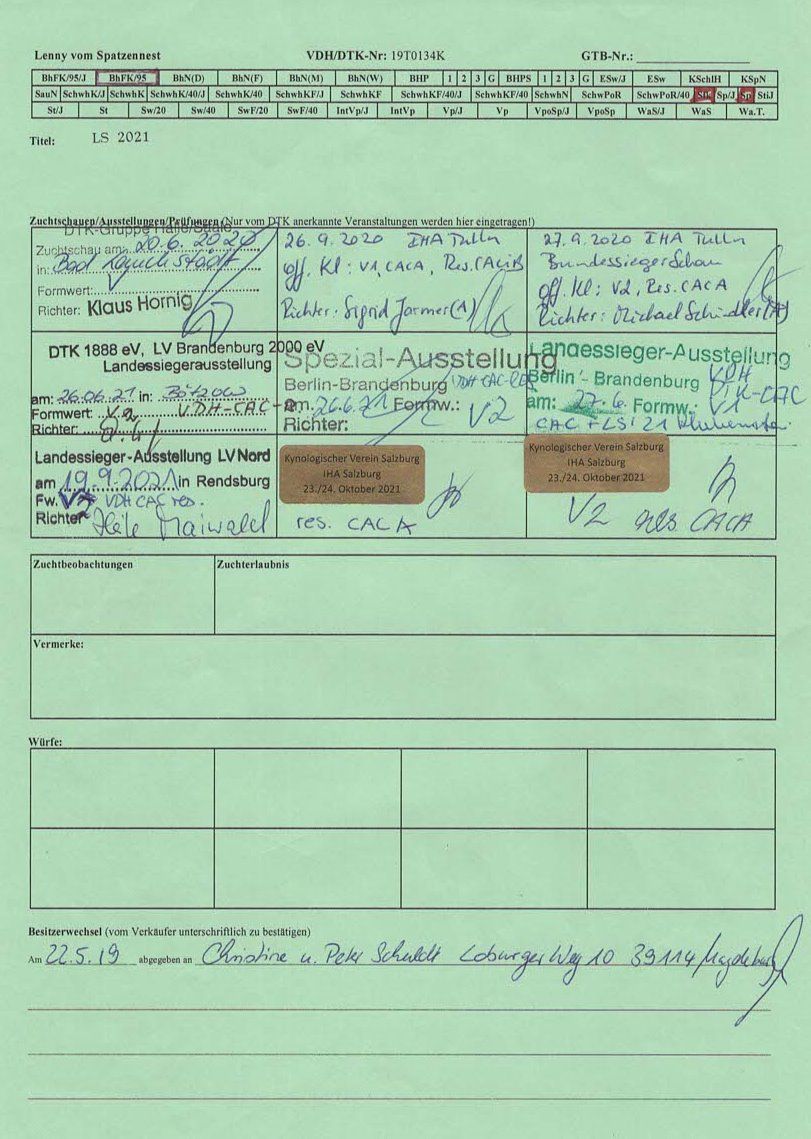 Lenny vom Spatzennest VDH/DTK-Nr: 19T0134K GTB-Nr.:
BhFK/95/J BhFK/95 BhN(D) BhN(F) BhN(M) BhN(W) BHP 1 2 3 G BHPS 1 2 3 G ESw/J ESw KSchlH KSpN
SauN SchwhK/J SchwhK SchwhK/40/J SchwhK/40 SchwhKF/J SchwhKF SchwhKF/40/J SchwhKF/40 SchwhN SchwPoR SchwPoR/40 Sp/J Sp StiJ
St/J St Sw/20 Sw/40 SwF/20 SwF/40 IntVp/J IntVp Vp/J Vp VpoSp/J VpoSp WaS/J WaS Wa.T.
Titel: LS 2021
Zuchtschauen/Ausstellungen/Prüfungen (Nur vom DTK anerkannte Veranstaltungen werden hier eingetragen!)
DTK-Gruppe Halle/Saale
Zuchtschau am: 20.6.2020
in: Bad Lauchstädt
Formwert: V
Richter: Klaus Hornig
26.9.2020 IHA Tulln
off. Kl: V1, CACA, Res. CACIB
Richter: Sigrid Jarmer (A)
27.9.2020 IHA Tulln
Bundessieger Schau
off. Kl: V2, Res. CACA
Richter: Michael Schindler (A)
DTK 1888 eV, LV Brandenburg 2000 eV
Landessiegerausstellung
am: 26.06.21 in: Bötzow
Formwert: V2 VDH-CAC-R
Richter:
Spezial-Ausstellung
Berlin-Brandenburg VDH CAC-RES
am. 26.6.21 Formw.: V2
Richter:
Landessieger-Ausstellung
Berlin - Brandenburg VDH
am: 27.6. Formw.: V1 DTK-CAC
CAC + LSi 21
Landessieger-Ausstellung LV Nord
am 19.9.2021 in Rendsburg
Fw. V2 VDH CAC res.
Richter Maiwald
Kynologischer Verein Salzburg
IHA Salzburg
23./24. Oktober 2021
res. CACA
Kynologischer Verein Salzburg
IHA Salzburg
23./24. Oktober 2021
V2 res CACA
Zuchtbeobachtungen Zuchterlaubnis
Vermerke:
Würfe:
Besitzerwechsel (vom Verkäufer unterschriftlich zu bestätigen)
Am 22.5.19 abgegeben an Christine u. Peter Schuldt Loburger Weg 10 39114 Magdeburg